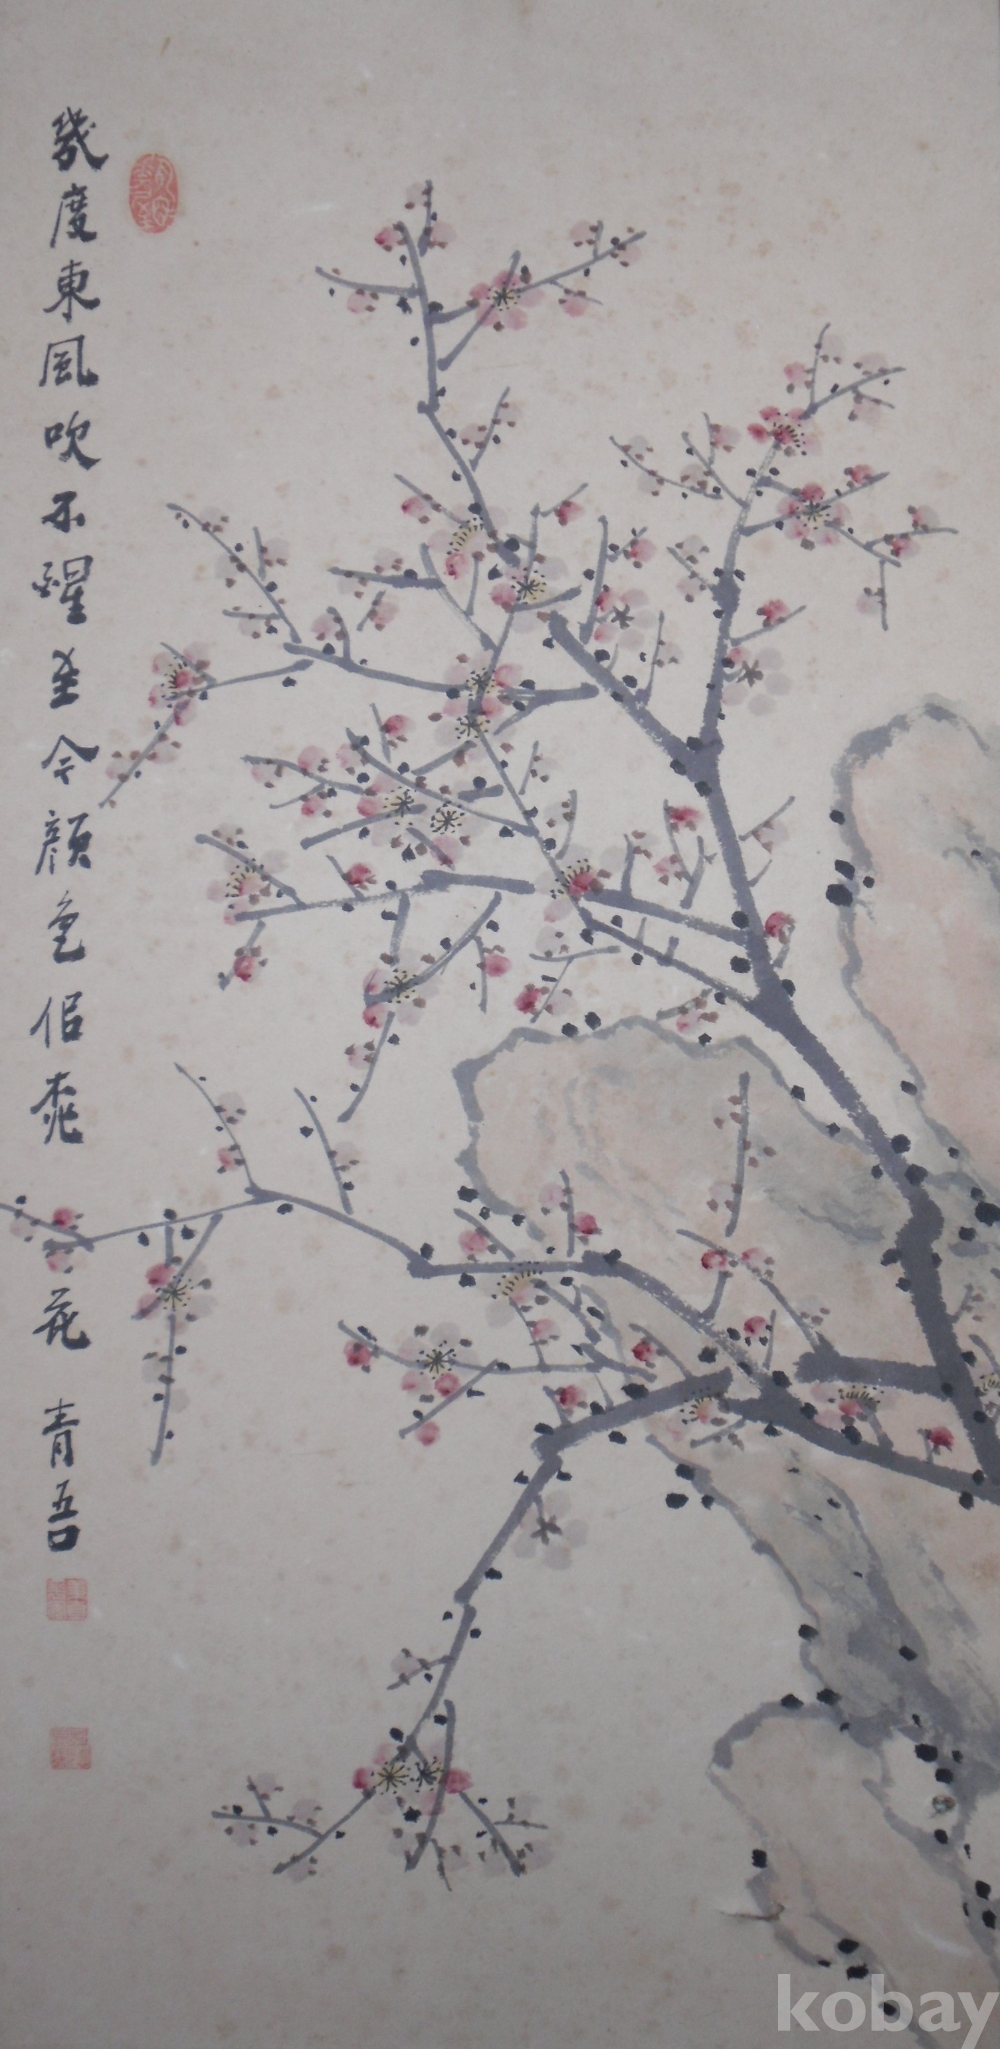 幾度東風吹不醒至今顔色侣桃花 青吾
kobay